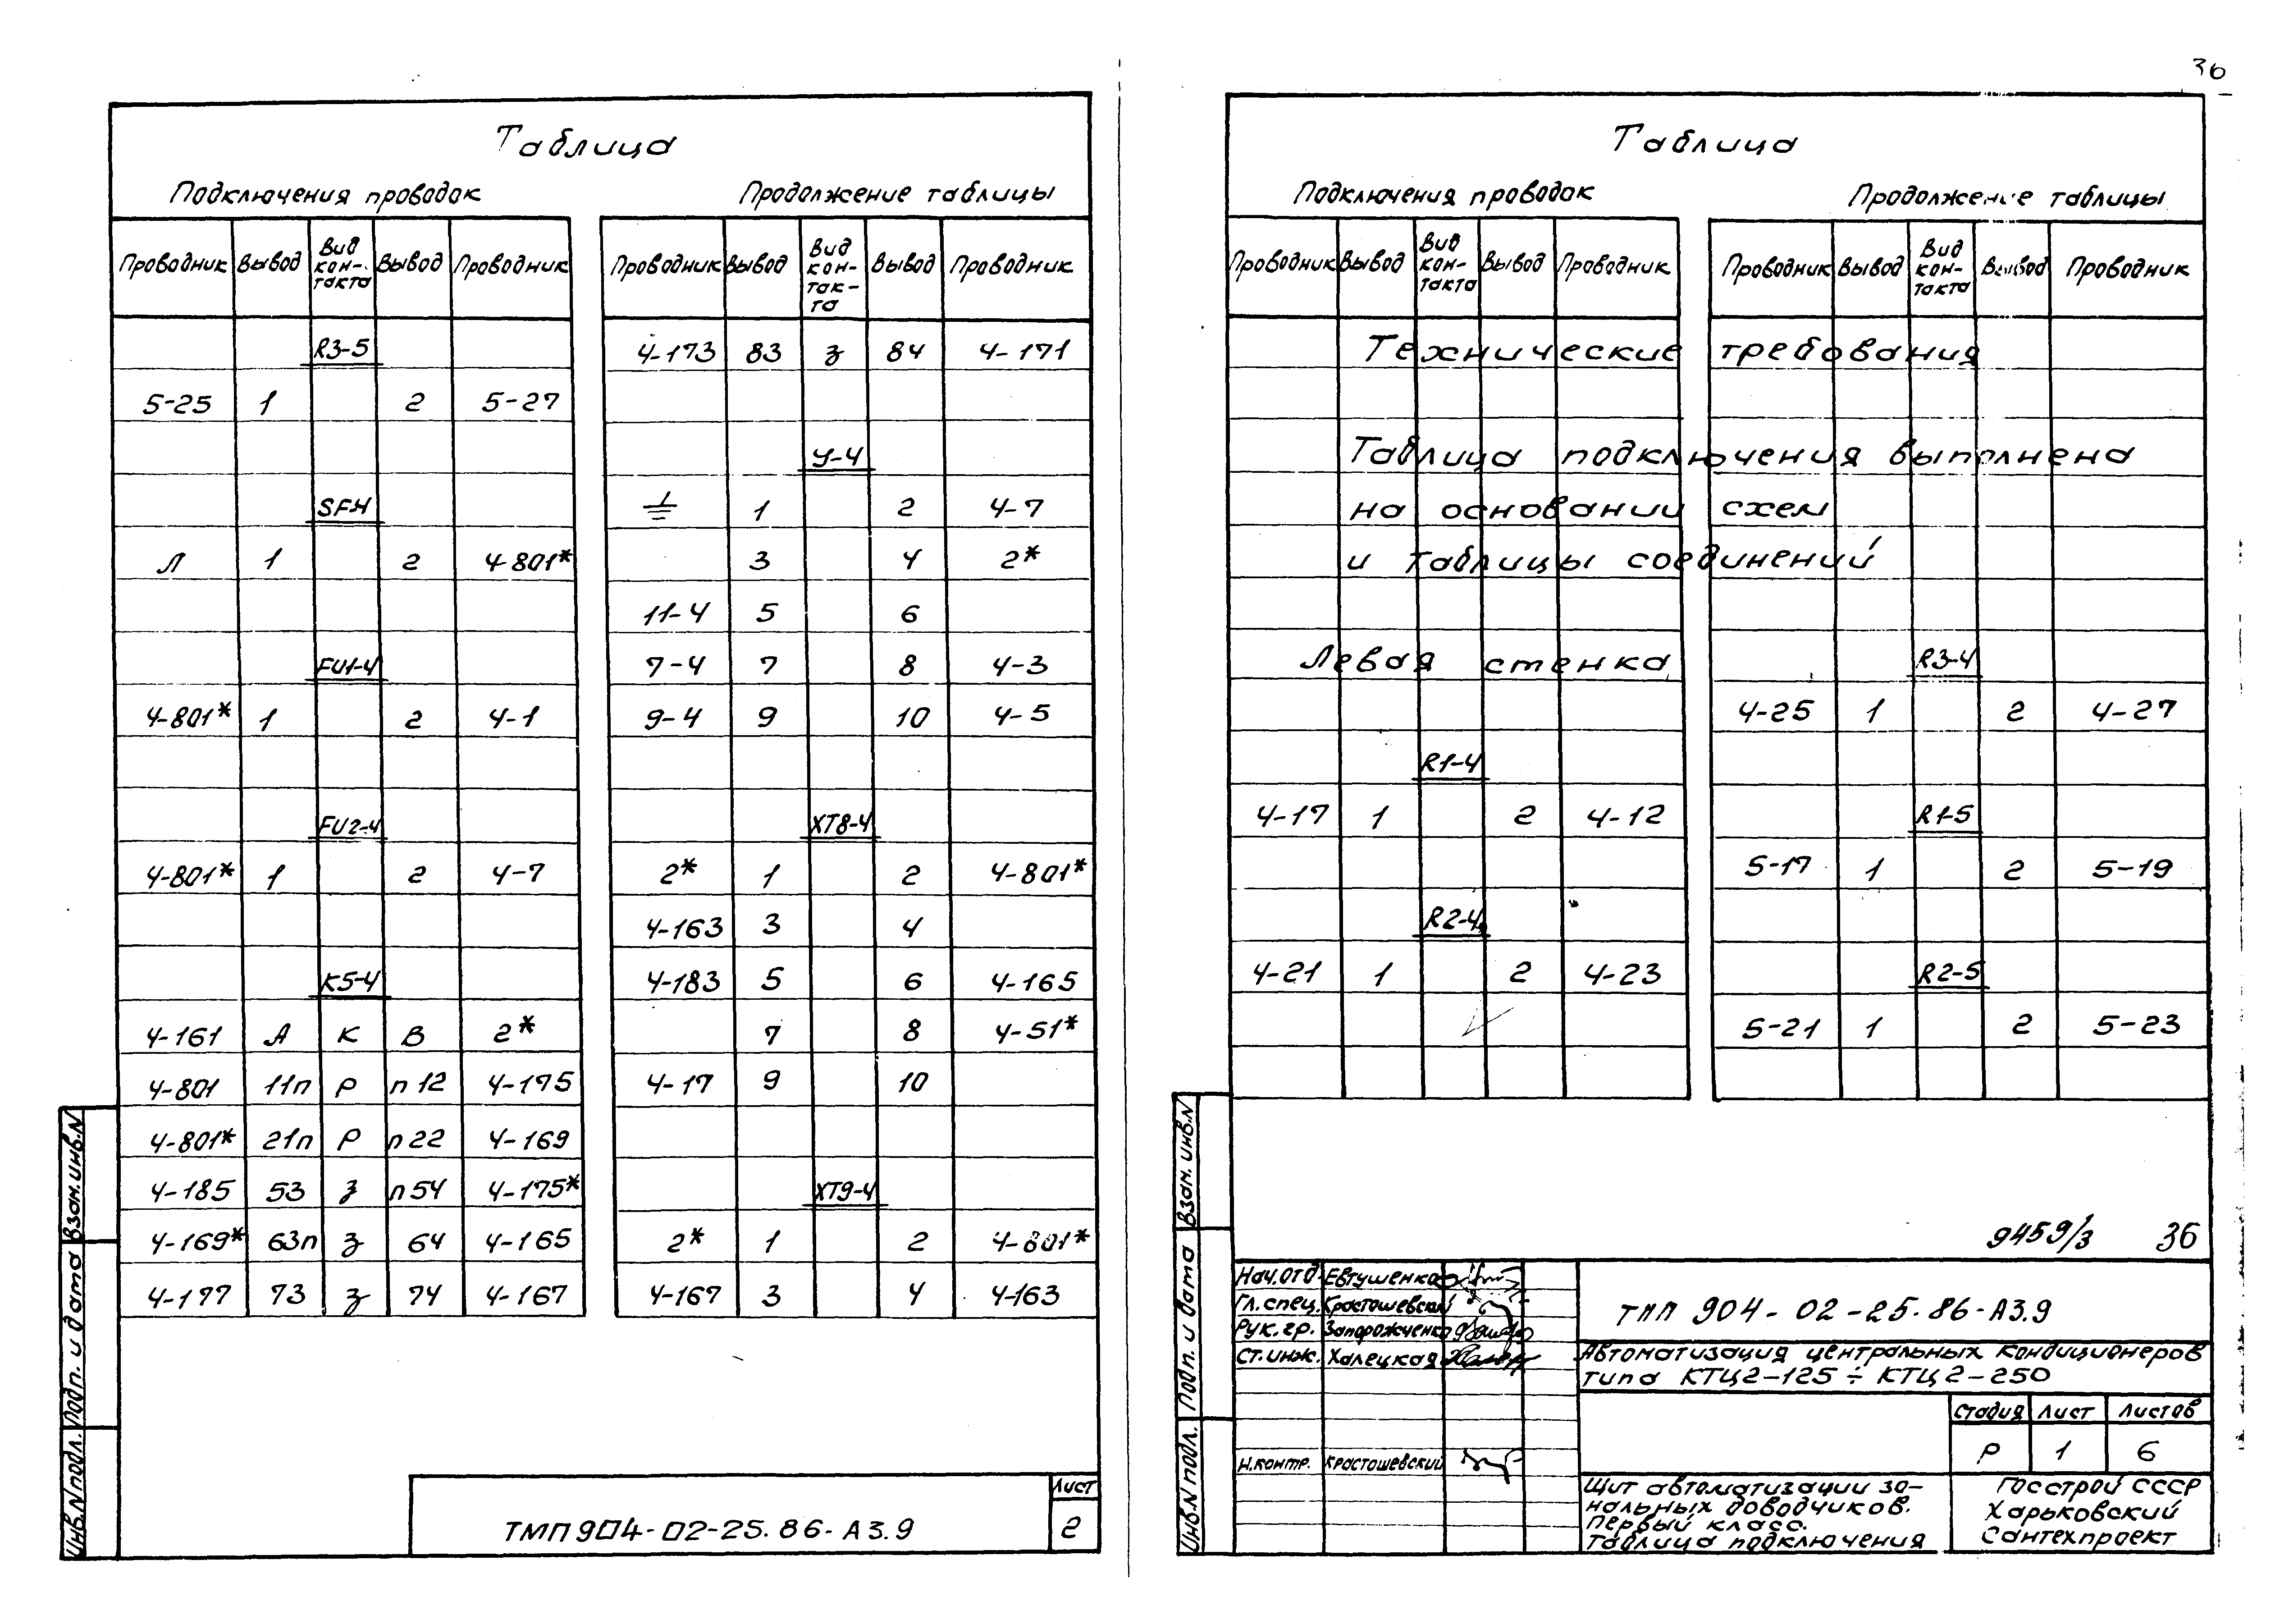 36
Таблица
Подключения проводок Продолжение таблицы
Проводник Вывод Вид кон-такта Вывод Проводник Проводник Вывод Вид кон-так-та Вывод Проводник
R3-5 4-173 83 з 84 4-171
5-25 1 2 5-27
У-4
SF-4 ⏚ 1 2 4-7
Л 1 2 4-801* 3 4 2*
11-4 5 6
FU1-4 7-4 7 8 4-3
4-801* 1 2 4-1 9-4 9 10 4-5
FU2-4 XT8-4
4-801* 1 2 4-7 2* 1 2 4-801*
4-163 3 4
K5-4 4-183 5 6 4-165
4-161 А К В 2* 7 8 4-51*
4-801 11п Р п12 4-175 4-17 9 10
4-801* 21п Р п22 4-169
4-185 53 з п54 4-175* XT9-4
4-169* 63п з 64 4-165 2* 1 2 4-801*
4-177 73 з 74 4-167 4-167 3 4 4-163
Взам. инв.N
Подп. и дата
Инв.N подл.
ТМП 904-02-25.86-А3.9
Лист
2
Таблица
Подключения проводок Продолжение таблицы
Проводник Вывод Вид кон-такта Вывод Проводник Проводник Вывод Вид кон-такта Вывод Проводник
Технические требования
Таблица подключения выполнена
на основании схем
и таблицы соединений
Левая стенка R3-4
4-25 1 2 4-27
R1-4
4-17 1 2 4-12 R1-5
5-17 1 2 5-19
R2-4
4-21 1 2 4-23 R2-5
5-21 1 2 5-23
Взам. инв.N
Подп. и дата
Инв.N подл.
9459/3 36
Нач.отд. Евтушенко
Гл.спец. Крастошевский
Рук.гр. Запорожченко
Ст.инж. Халецкая
Н.контр. Крастошевский
ТМП 904-02-25.86-А3.9
Автоматизация центральных кондиционеров
типа КТЦ2-125 ÷ КТЦ2-250
Стадия Лист Листов
Р 1 6
Щит автоматизации зо-
нальных доводчиков.
Первый класс.
Таблица подключения
Госстрой СССР
Харьковский
Сантехпроект